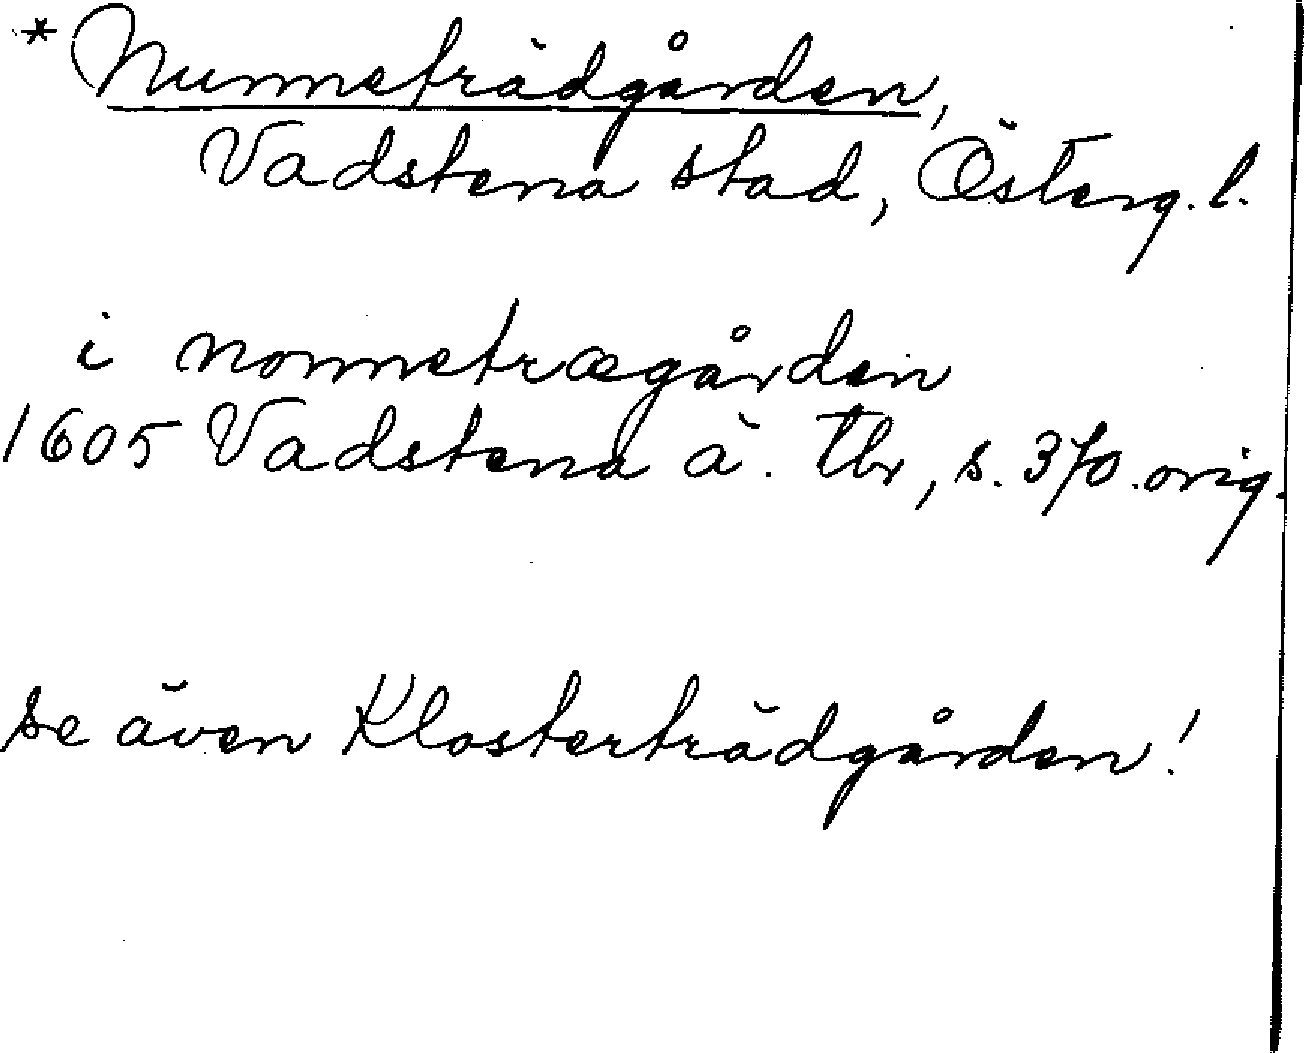 * Nunneträdgården,
Vadstena stad, Österg. l.
i nonnetrægården
1605 Vadstena ä. tbr, s. 370. orig.
se även Klosterträdgården!